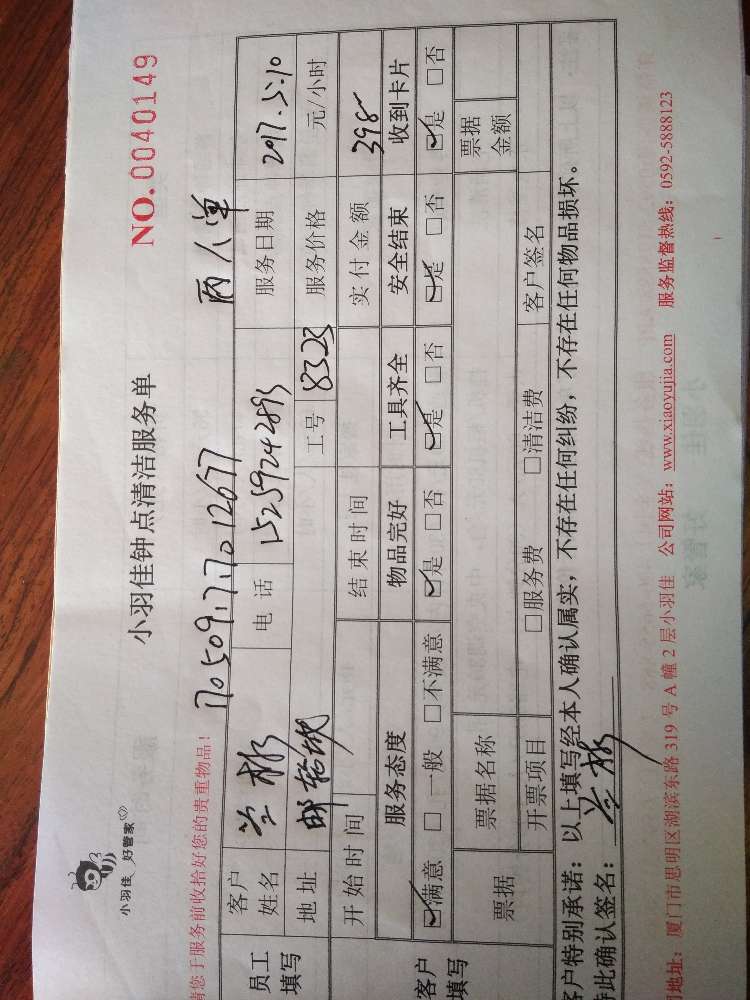 小羽佳 好管家
小羽佳钟点清洁服务单
NO.0040149
请您于服务前收拾好您的贵重物品！
两人单
员工填写
客户姓名
电话 15259242895
服务日期 2017.5.10
地址 邮轮城
工号 8323
服务价格 元/小时
开始时间 结束时间 实付金额 398
客户填写
服务态度 物品完好 工具齐全 安全结束 收到卡片
☑满意 □一般 □不满意 ☑是 □否 ☑是 □否 ☑是 □否 ☑是 □否
票据 票据名称 票据金额
开票项目 □服务费 □清洁费 客户签名
客户特别承诺：以上填写经本人确认属实，不存在任何纠纷，不存在任何物品损坏。
特此确认签名：
地址：厦门市思明区湖滨东路 319 号 A 幢 2 层小羽佳 公司网站：www.xiaoyujia.com 服务监督热线：0592-5888123